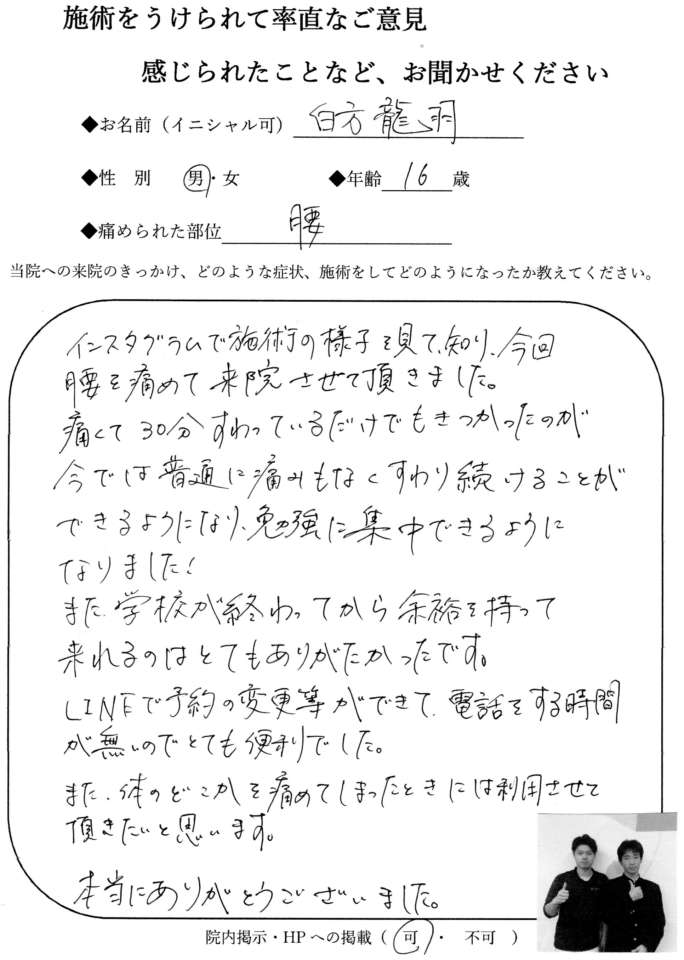 施術をうけられて率直なご意見
感じられたことなど、お聞かせください
◆お名前（イニシャル可） 白方 龍羽
◆性 別 男・女 ◆年齢 16 歳
◆痛められた部位 腰
当院への来院のきっかけ、どのような症状、施術をしてどのようになったか教えてください。
インスタグラムで施術の様子を見て、知り、今回
腰を痛めて来院させて頂きました。
痛くて30分すわっているだけでもきつかったのが
今では普通に痛みもなくすわり続けることが
できるようになり、勉強に集中できるように
なりました!
また、学校が終わってから余裕を持って
来れるのはとてもありがたかったです。
LINEで予約の変更等ができて、電話をする時間
が無いのでとても便利でした。
また、体のどこかを痛めてしまったときには利用させて
頂きたいと思います。
本当にありがとうございました。
院内掲示・HPへの掲載（ 可 ・ 不可 ）